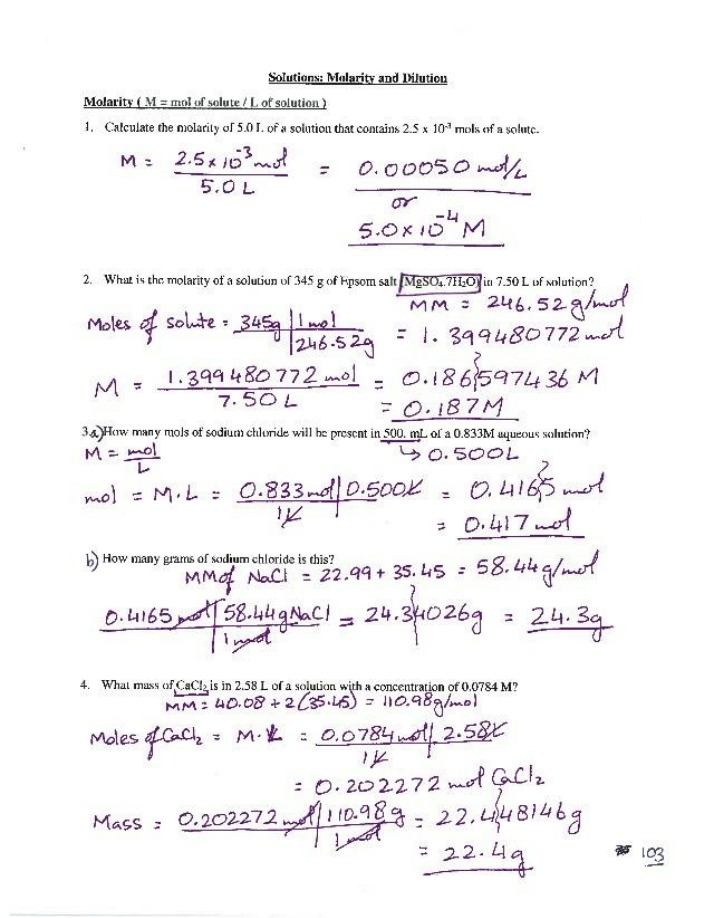 Solutions: Molarity and Dilution
Molarity ( M = mol of solute / L of solution )
1. Calculate the molarity of 5.0 L of a solution that contains 2.5 x 10⁻³ mols of a solute.
M = 2.5 x 10⁻³ mol / 5.0 L = 0.00050 mol/L
or
5.0 x 10⁻⁴ M
2. What is the molarity of a solution of 345 g of Epsom salt (MgSO₄.7H₂O) in 7.50 L of solution?
MM = 246.52 g/mol
Moles of solute = 345g | 1 mol / 246.52g = 1.399480772 mol
M = 1.399480772 mol / 7.50 L = 0.186597436 M
= 0.187M
3.a) How many mols of sodium chloride will be present in 500. mL of a 0.833M aqueous solution?
M = mol / L ↳ 0.500L
mol = M.L = 0.833 mol | 0.500L / 1L = 0.4165 mol
= 0.417 mol
b) How many grams of sodium chloride is this?
MM of NaCl = 22.99 + 35.45 = 58.44 g/mol
0.4165 mol | 58.44 g NaCl / 1 mol = 24.34026g = 24.3g
4. What mass of CaCl₂ is in 2.58 L of a solution with a concentration of 0.0784 M?
MM = 40.08 + 2(35.45) = 110.98g/mol
Moles of CaCl₂ = M.L = 0.0784 mol | 2.58L / 1L
= 0.202272 mol CaCl₂
Mass = 0.202272 mol | 110.98g / 1 mol = 22.448146g
= 22.4g
103